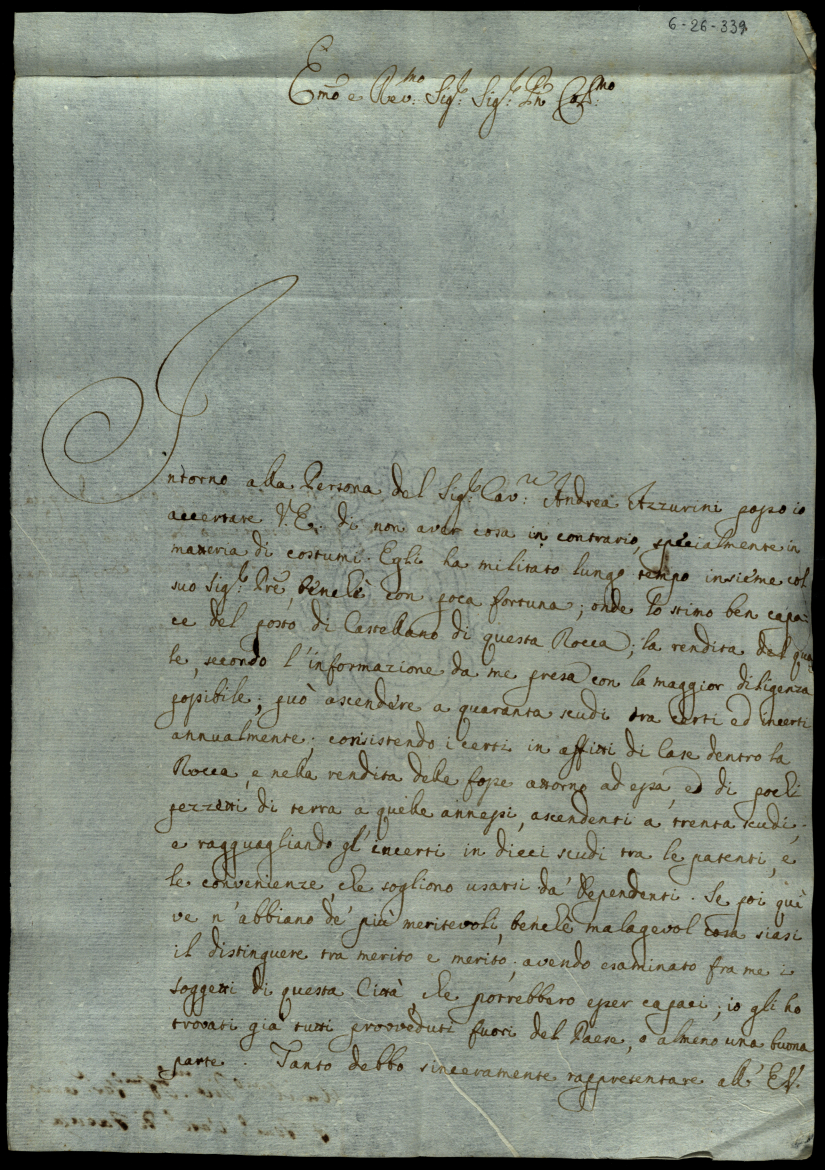 6-26-339
Emo e Rev:mo Sig:r Sig:r Pn Col:mo
Intorno alla Persona del Sig:r Cav:re Andrea Azzurini posso io
accertare V.E. di non aver cosa in contrario, specialmente in
materia di costumi. Egli ha militato lungo tempo insieme col
suo Sig:r Pre, benchè con poca fortuna; onde lo stimo ben capa-
ce del posto di Castellano di questa Rocca; la rendita del qua-
le, secondo l'informazione da me presa con la maggior diligenza
possibile, può ascendere a quaranta scudi tra certi ed incerti
annualmente; consistendo i certi in affitti di Case dentro la
Rocca, e nella rendita delle fosse attorno ad essa, ed di pochi
pezzetti di terra a quelle annessi, ascendenti a trenta scudi;
e ragguagliando gl'incerti in dieci scudi tra le patenti, e
le convenienze, che sogliono usarsi da' dependenti. Se poi quì
ve n'abbiano de' più meritevoli, benchè malagevol cosa siasi
il distinguere tra merito e merito; avendo esaminato fra me i
soggetti di questa Città, che potrebbero esser capaci; io gli ho
trovati già tutti provveduti fuori del Paese, o almeno una buona
parte. Tanto debbo sinceramente rappresentare all' E.V.